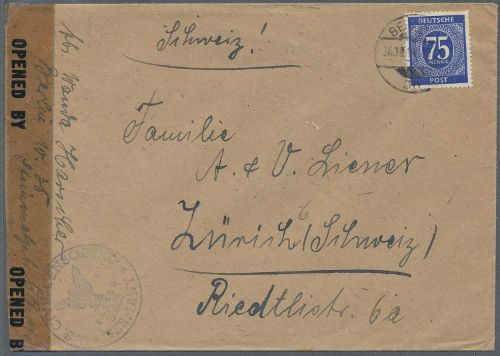 Schweiz!
DEUTSCHE
75
PFENNIG
POST
BE
Familie
A. & V. Liener
Zürich (Schweiz)
Riedtlistr. 6a
OPENED BY
OPENED B
Abs. Wanda
Berlin W. 35